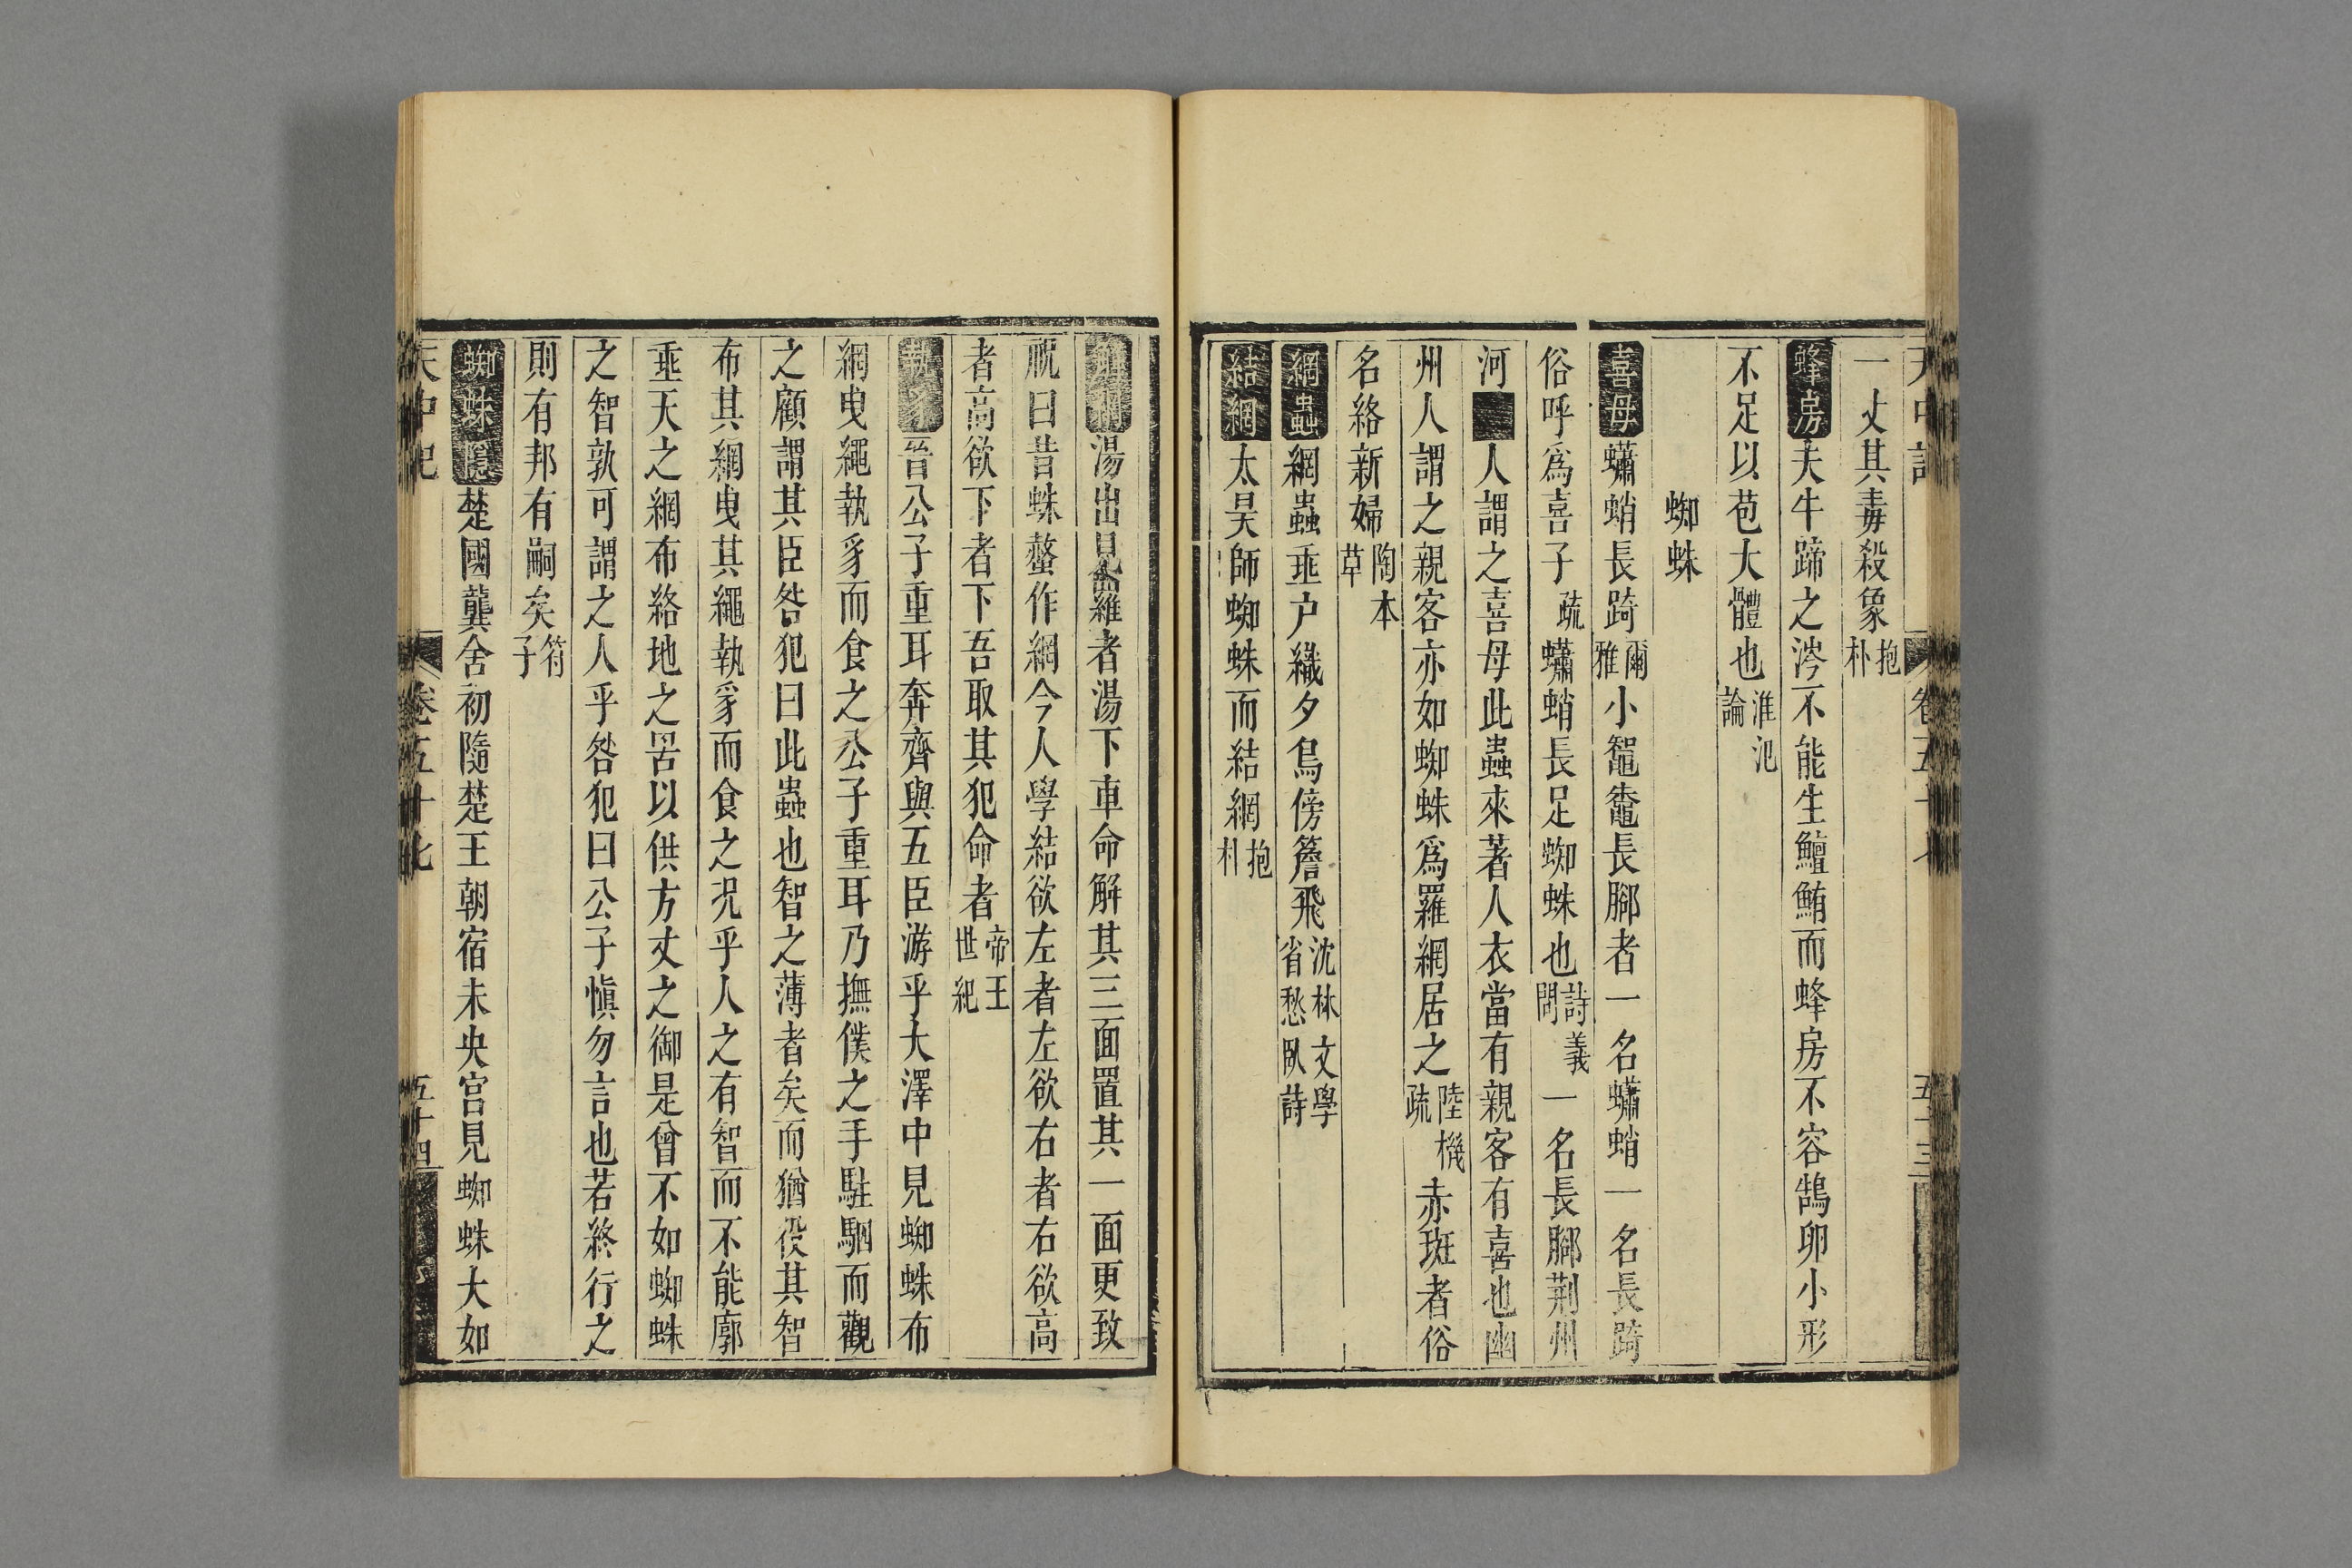 一丈其毒殺象抱朴
蜂房夫牛蹄之涔不能生鱣鮪而蜂房不容鵠卵小形
不足以苞大體也淮氾論
蜘蛛
喜母蠨蛸長踦爾雅小鼅鼄長腳者一名蠨蛸一名長踦
俗呼爲喜子疏蠨蛸長足蜘蛛也詩義問一名長腳荆州
河人謂之喜母此蟲來著人衣當有親客有喜也幽
州人謂之親客亦如蜘蛛爲羅網居之陸機疏赤斑者俗
名絡新婦陶本草
網蟲網蟲垂户織夕鳥傍簷飛沈林文學省愁臥詩
結網太昊師蜘蛛而結網抱朴
湯出見羅者湯下車命解其三面置其一面更致
祝曰昔蛛蝥作網今人學結欲左者左欲右者右欲高
者高欲下者下吾取其犯命者帝王世紀
執豸晉公子重耳奔齊與五臣游乎大澤中見蜘蛛布
網曳繩執豸而食之公子重耳乃撫僕之手駐駟而觀
之顧謂其臣咎犯曰此蟲也智之薄者矣而猶役其智
布其網曳其繩執豸而食之况乎人之有智而不能廓
垂天之網布絡地之罟以供方丈之御是曾不如蜘蛛
之智孰可謂之人乎咎犯曰公子愼勿言也若終行之
則有邦有嗣矣符子
蜘蛛隱楚國龔舍初隨楚王朝宿未央宫見蜘蛛大如
天中記 卷五十七 五十四